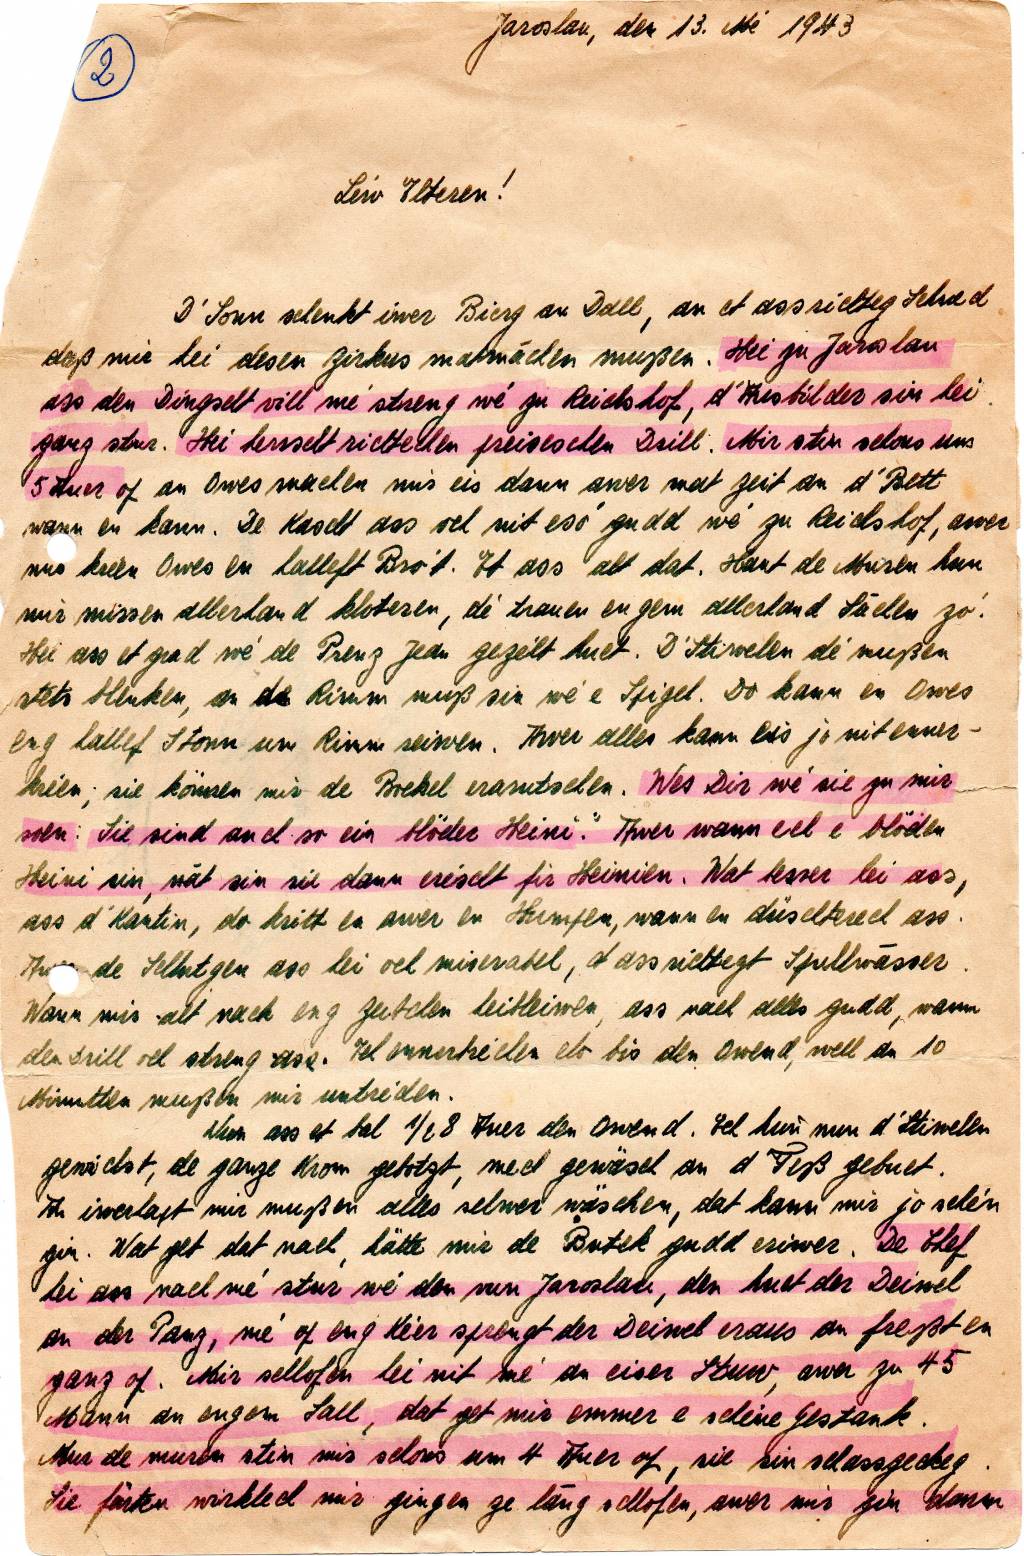 Jaroslau, den 13. Mé 1943
2
Léiv Elteren!
D'Sonn schenkt iwer Bierg an Dall, an et ass richteg Schued
daß mir hei desen Zirkus matmächen mußen. Hei zu Jaroslau
ass den Dingscht vill mé streng wé zu Reichshof, d'Ausbilder sin hei
ganz stur. Hei herrscht richtechen preiseschen Drill. Mir stin schons um
5 Auer of an Owes machen mir eis dann awer mat Zeit an d'Bett
wann en kann. De Kascht ass och nit esó gudd wé zu Reichshof, awer
mir kréen Owes en halleft Brót. Et ass alt dat. Haut de Muren hun
mir missen allerhand kloteren, dé trauen engem allerhand Sächen zó.
Hei ass et grad wé de Prenz Jean gezielt huet. D'Stiwelen dé mußen
stets blenken, an de Rimm muß sin wé e Spigel. Do kann en Owes
eng hallef Stonn um Rimm reiwen. Awer alles kann eis jo nit enner-
kréen; sie können mir de Bockel erarutschen. Wes Dir wé sie zu mir
soen: Sie sind auch so ein blöder Heini." Awer wann ech e blöden
Heini sin, wät sin sie dann eréischt fir Heinien. Wat besser hei ass,
ass d'Kantin, do kritt en awer en Humpen, wann en düschterech ass.
Awer de Schutgen ass hei och miserabel, d'ass richtegt Spullwässer.
Wann mir alt nach eng Zeitchen heibleiwen, ass nach alles gudd, wann
den Drill och streng ass. Ech ennerbriechen elo bis den Owend, well an 10
Minutten mußen mir untrieden.
Nun ass et bal 1/2 8 Auer den Owend. Ech hun nun d'Stiwelen
gewichst, de ganze Krom gebotzt, mech gewäsch an d'Féß gebuet.
An iwerhapt mir mußen alles selwer wäschen, dat kann mir jo schéin
gin. Wat get dat nach, hätte mir de Butek gudd eriwer. De Chef
hei ass nach mé stur wé den vun Jaroslau, den huet der Deiwel
an der Panz, mé of eng Kéier sprengt der Deiwel eraus an freßt en
ganz of. Mir schlofen hei nit mé an eiser Stuw, awer zu 45
Mann an engem Sall, dat get mir emmer e schéine Gestank.
Mur de muren stin mir schons um 4 Auer of, sie sin schassgecheg.
Sie färten wirklech mir gingen ze läng schlofen, awer mir gin dann